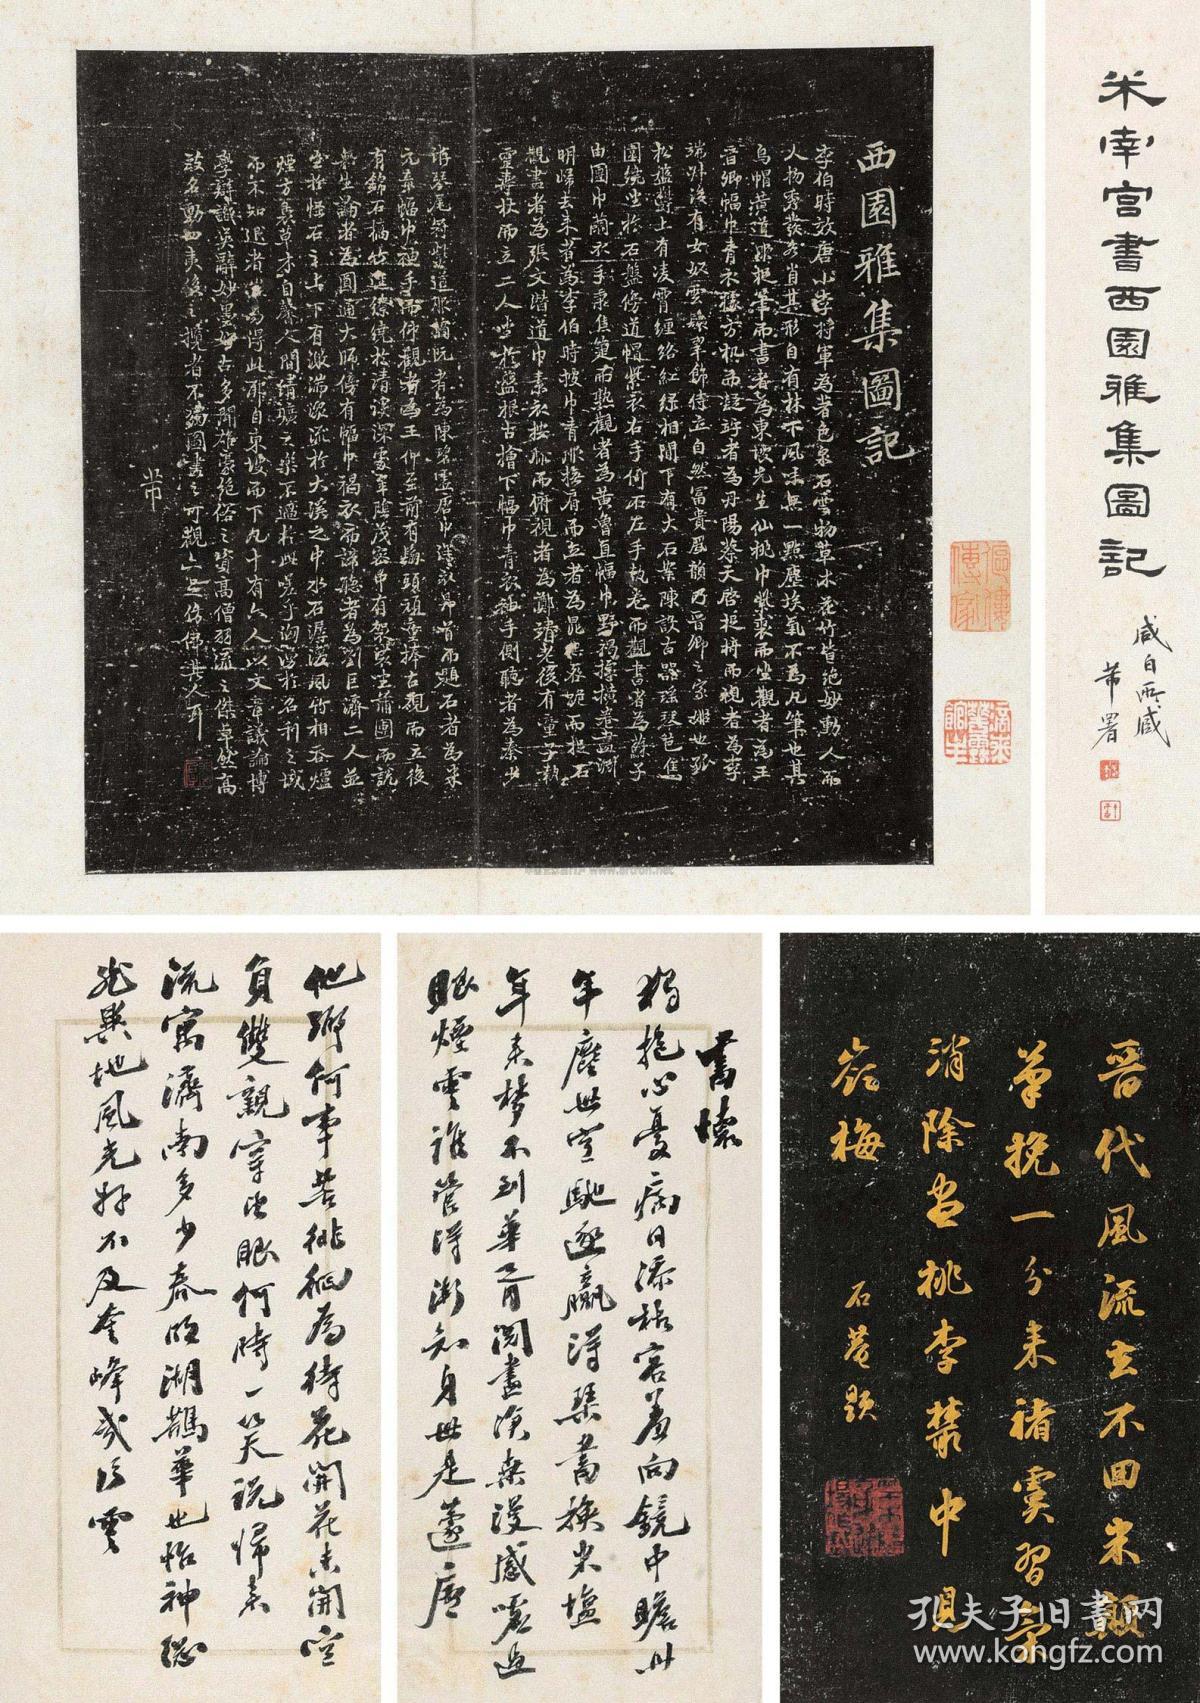 米南宫書西園雅集圖記
咸白所藏
芾署
西園雅集圖記
李伯時效唐小李將軍為著色泉石雲物草木花竹皆絕妙動人而
人物秀發各肖其形自有林下風味無一點塵埃氣不為凡筆也其
烏帽黃道服捉筆而書者為東坡先生仙桃巾紫裘而坐觀者為王
晉卿幅巾青衣據方机而凝竚者為丹陽蔡天啓捉椅而視者為李
端叔後有女奴雲鬟翠飾侍立自然富貴風韻乃晉卿之家姬也孤
松盤鬱上有凌霄纏絡紅綠相間下有大石案陳設古器瑤琴芭蕉
圍繞坐於石盤傍道帽紫衣右手倚石左手執卷而觀書者為蘇子
由團巾繭衣手秉蕉箑而熟觀者為黃魯直幅巾野褐據橫卷畫淵
明歸去來者為李伯時披巾青服撫肩而立者為晁無咎跪而捉石
觀畫者為張文潛道巾素衣按膝而俯視者為鄭靖老後有童子執
靈壽杖而立二人坐於盤根古檜下幅巾青衣袖手側聽者為秦少
游琴尾冠紫道服摘阮者為陳碧虛唐巾深衣昂首而題石者為米
元章幅巾袖手而仰觀者為王仲至前有鬅頭頑童捧古硯而立後
有錦石橋竹逕繚繞於清溪深處翠陰茂密中有袈裟坐蒲團而說
無生論者為圓通大師傍有幅巾褐衣而諦聽者為劉巨濟二人並
坐於怪石之上下有激湍潨流於大溪之中水石潺湲風竹相吞爐
煙方裊草木自馨人間清曠之樂不過於此嗟乎洶湧於名利之域
而不知退者豈易得此耶自東坡而下凡十有六人以文章議論博
學辯識英辭妙墨好古多聞雄豪絕俗之資高僧羽流之傑卓然高
致名動四夷後之攬者不獨圖畫之可觀亦足彷彿其人耳
芾
晉代風流去不回米顛
筆挽一分來褚虞習氣
消除盡桃李叢中見
嶺梅
石菴題
書懷
獨抱心憂病日添枯容羞向鏡中瞻卅
年塵世空馳逐贏得琴書換米鹽
年來夢不到華胥閱畫談棊漫感噓過
眼煙雲誰管得漸知身世是蘧廬
他鄉何事苦徘徊為待花開花未開空
負雙親穿望眼何時一笑說歸來
流寓濟南多少春明湖鵲華也怡神縱
然異地風光好不及奎峰幾片雲
孔夫子旧书网
www.kongfz.com